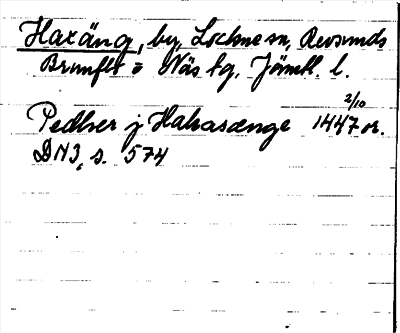 Haxäng, by, Lockne sn, Revsunds
Brunflo o Näs tg, Jämtl. l.
2/10
Pedher j Halsasænge 1447 or.
DN 3, s. 574